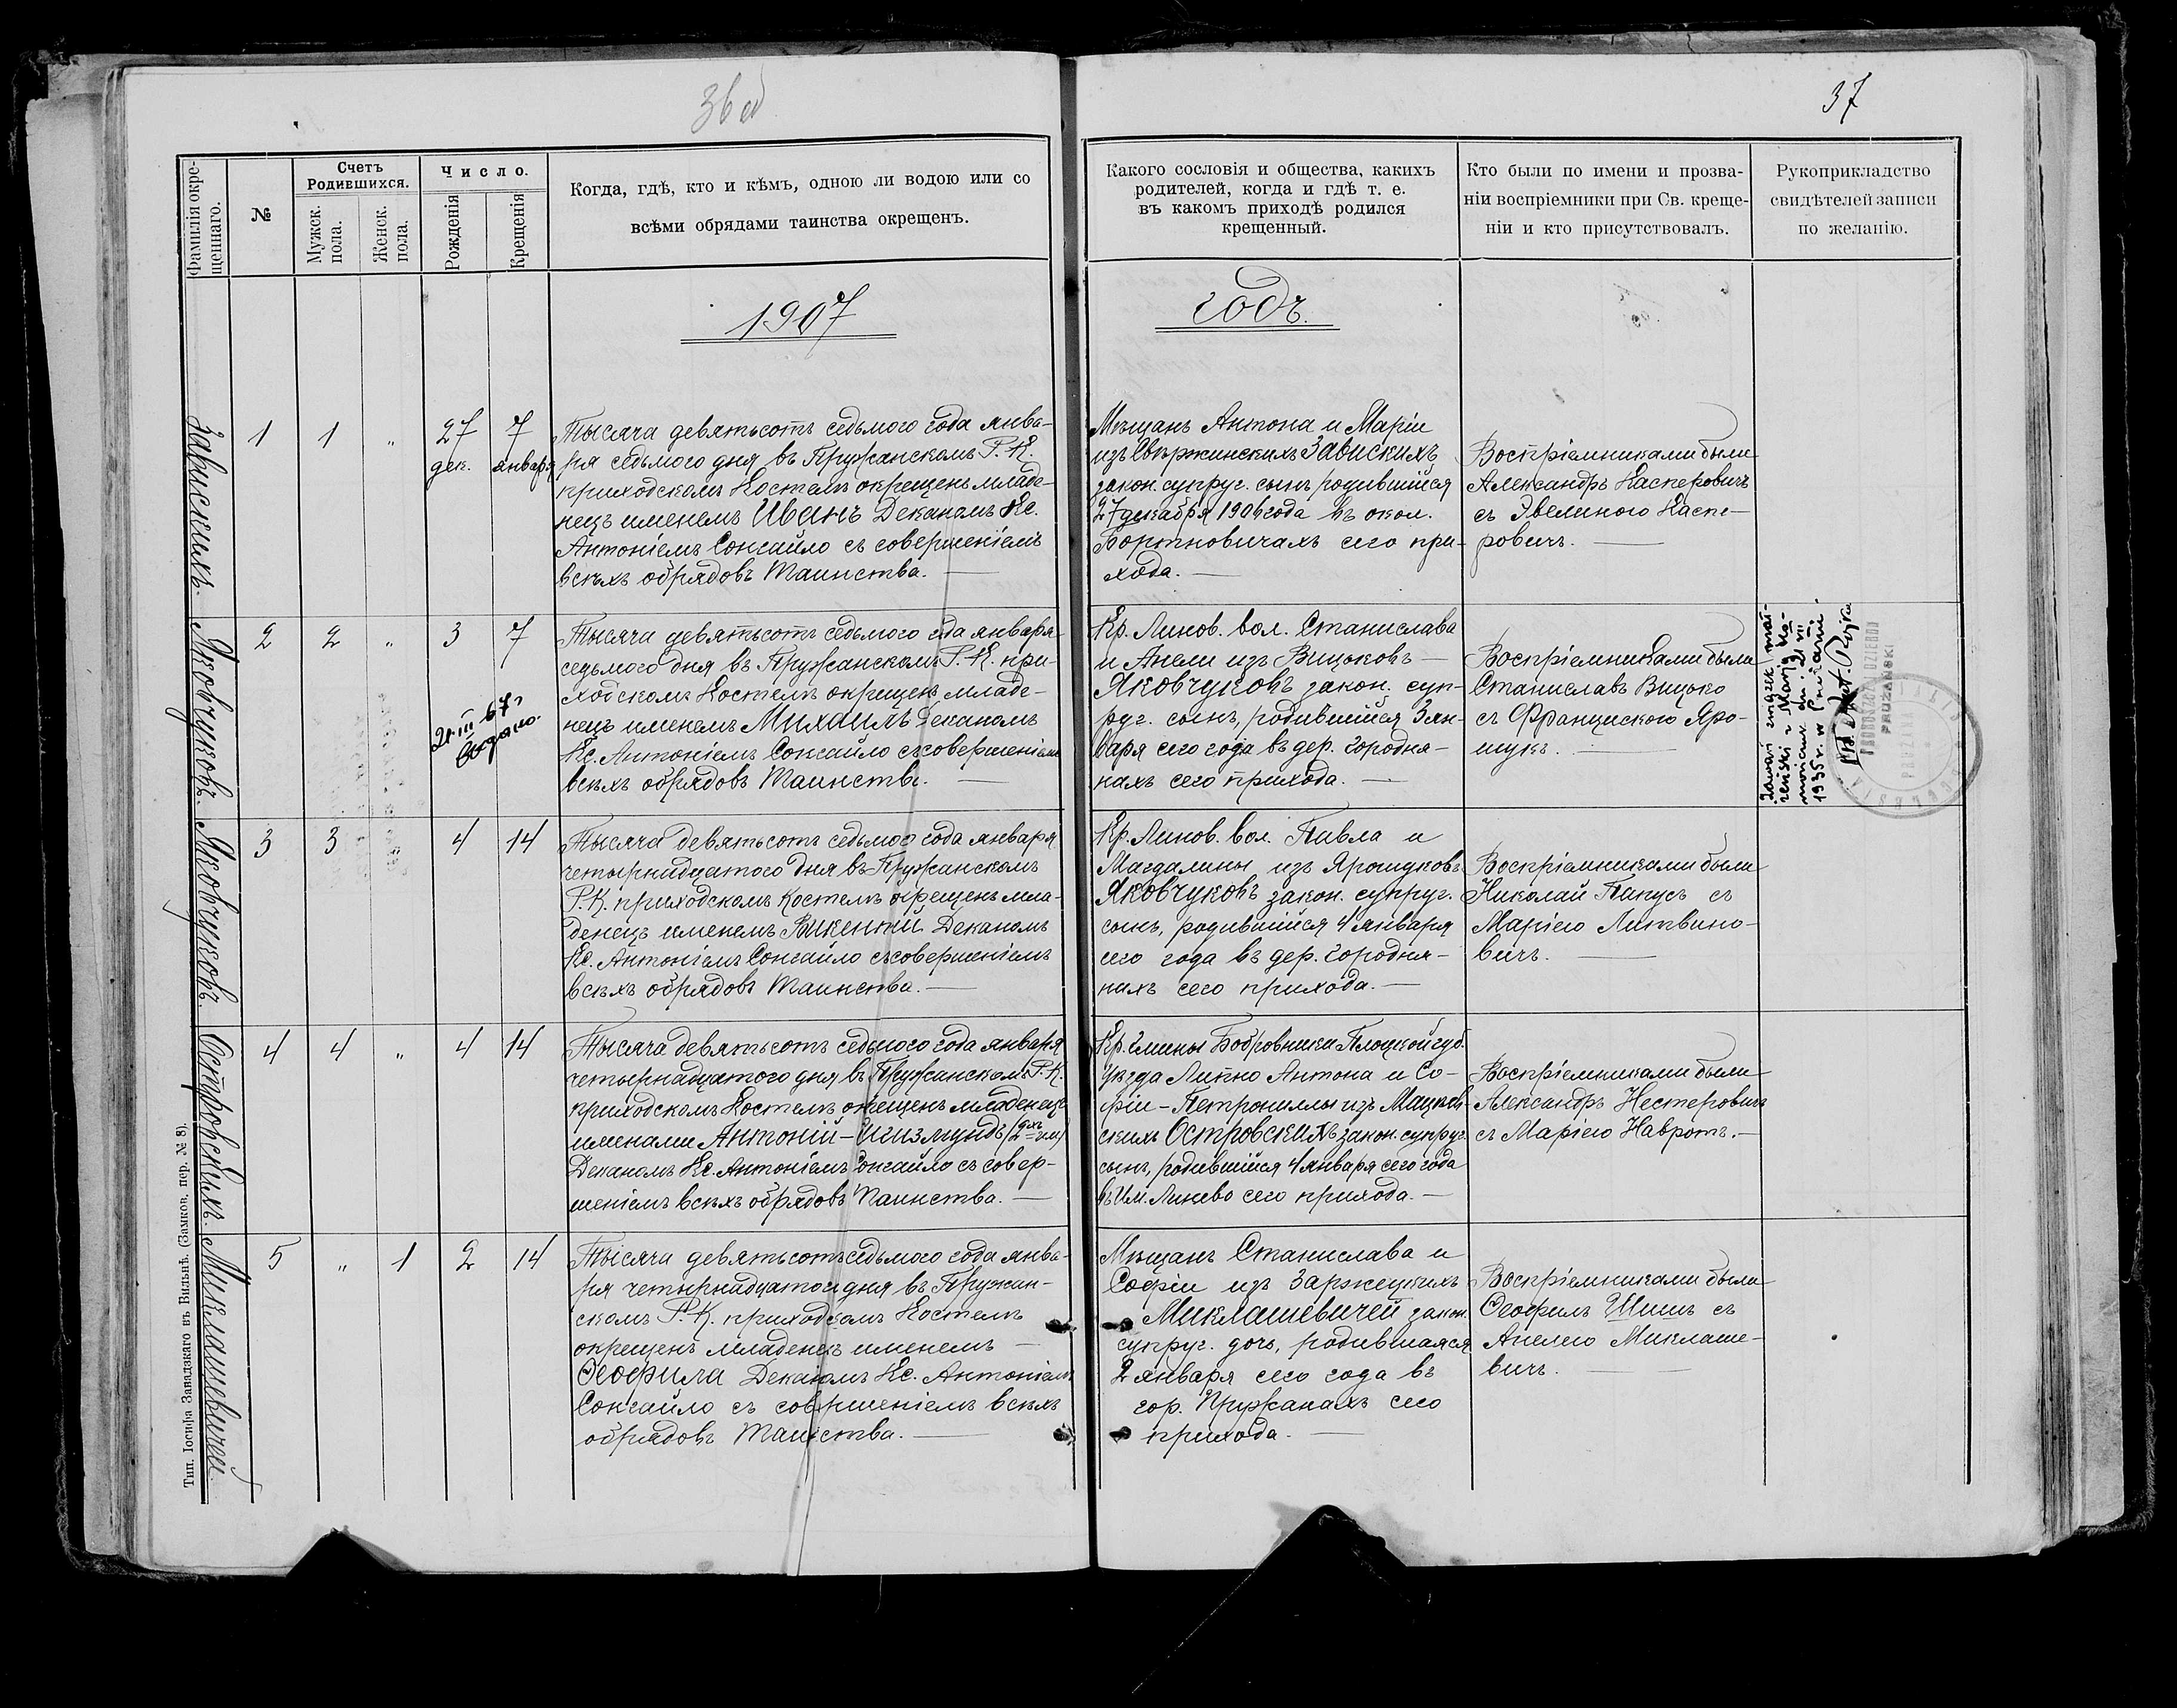 37
Фамилія окре-
щеннаго.
№
Счетъ
Родившихся.
Мужск.
пола.
Женск.
пола.
Число.
Рожденія
Крещенія
Когда, гдѣ, кто и кѣмъ, одною ли водою или со
всѣми обрядами таинства окрещенъ.
Какого сословія и общества, какихъ
родителей, когда и гдѣ т. е.
въ какомъ приходѣ родился
крещенный.
Кто были по имени и прозва-
ніи воспріемники при Св. креще-
ніи и кто присутствовалъ.
Рукоприкладство
свидѣтелей записи
по желанію.
1907
годъ.
Завискихъ.
1
1
"
27
дек.
7
января
Тысяча девятьсотъ седьмого года янва-
ря седьмого дня въ Пружанскомъ Р. К.
приходскомъ Костелѣ окрещенъ младе-
нецъ именемъ Иванъ Деканомъ Кс.
Антоніемъ Сонгайло съ совершеніемъ
всѣхъ обрядовъ Таинства.
Мѣщанъ Антона и Маріи
изъ Свержинскихъ Завискихъ
закон. супруг. сынъ, родившійся
27 декабря 1906 года въ окол.
Бортновичахъ сего при-
хода.
Воспріемниками были
Александръ Касперовичъ
съ Эвелиною Каспе-
ровичъ.
Яковчуковъ.
2
2
"
3
7
21 III 67 г
выдано.
Тысяча девятьсотъ седьмого года января
седьмого дня въ Пружанскомъ Р. К. при-
ходскомъ Костелѣ окрещенъ младе-
нецъ именемъ Михаилъ Деканомъ
Кс. Антоніемъ Сонгайло съ совершеніемъ
всѣхъ обрядовъ Таинства.
Кр. Линов. вол. Станислава
и Анели изъ Вицьковъ
Яковчуковъ закон. суп-
руг. сынъ, родившійся 3 ян-
варя сего года въ дер. Городня-
нахъ сего прихода.
Воспріемниками были
Станиславъ Вицько
съ Францискою Яро-
шукъ.
Zawarł związek mał-
żeński z Marją
dn. 21 VII
1935 r. w Prużanie
PRUŻAŃSKI
Яковчуковъ.
3
3
4
14
Тысяча девятьсотъ седьмого года января
четырнадцатого дня въ Пружанскомъ
Р. К. приходскомъ Костелѣ окрещенъ мла-
денецъ именемъ Викентій Деканомъ
Кс. Антоніемъ Сонгайло съ совершеніемъ
всѣхъ обрядовъ Таинства.
Кр. Линов. вол. Павла и
Магдалины изъ Ярошуковъ
Яковчуковъ закон. супруг.
сынъ, родившійся 4 января
сего года въ дер. Городня-
нахъ сего прихода.
Воспріемниками были
Николай Папусь съ
Маріею Литвино-
вичъ.
Островскихъ.
4
4
"
4
14
Тысяча девятьсотъ седьмого года января
четырнадцатого дня въ Пружанскомъ Р. К.
приходскомъ Костелѣ окрещенъ младенецъ
именами Антоній-Сигизмундъ (2хъ им.)
Деканомъ Кс. Антоніемъ Сонгайло съ совер-
шеніемъ всѣхъ обрядовъ Таинства.
Кр. гмины Бобровники Плоцкой губ.
уѣзда Липно Антона и Со-
фіи-Петронили изъ Мацков-
скихъ Островскихъ закон. супруг.
сынъ, родившійся 4 января сего года
въ Им. Линево сего прихода.
Воспріемниками были
Александръ Нестеровичъ
съ Маріею Навротъ.
Миклашевичей.
5
"
1
2
14
Тысяча девятьсотъ седьмого года янва-
ря четырнадцатого дня въ Пружан-
скомъ Р. К. приходскомъ Костелѣ
окрещенъ младенецъ именемъ
Ѳеофила Деканомъ Кс. Антоніемъ
Сонгайло съ совершеніемъ всѣхъ
обрядовъ Таинства.
Мѣщанъ Станислава и
Софіи изъ Заржецкихъ
Миклашевичей закон.
супруг. дочь, родившаяся
2 января сего года въ
гор. Пружанахъ сего
прихода.
Воспріемниками были
Ѳеофилъ Шишъ съ
Анелею Миклаше-
вичъ.
Тип. Іосифа Завадзкаго въ Вильнѣ. (Замков. пер. № 8).